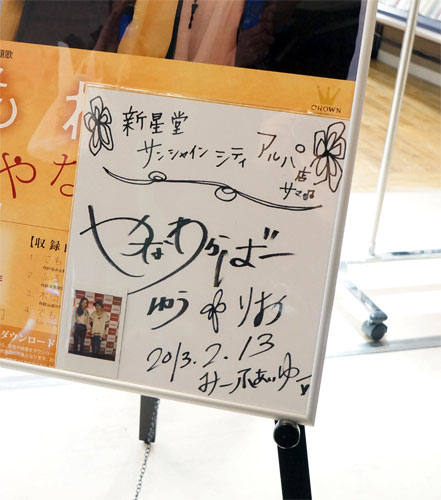 CROWN
やな
【収録
ダウンロード
新星堂
サンシャインシティ アルパ
店
サマ江
やなわらばー
ゆう りお
2013.2.13
みーふぁいゆー